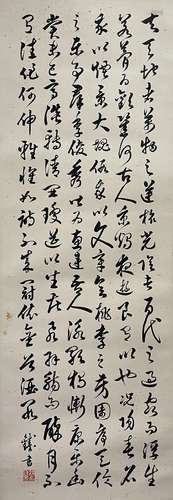 夫天地者萬物之逆旅光陰者百代之過客而浮生
若夢為歡幾何古人秉燭夜遊良有以也況陽春召
我以煙景大塊假我以文章會桃李之芳園序天倫
之樂事群季俊秀以為惠連吾人詠歌獨慚康樂幽
賞未已高談轉清開瓊筵以坐花飛羽觴而醉月不
有佳作何伸雅懷如詩不成罰依金谷酒數